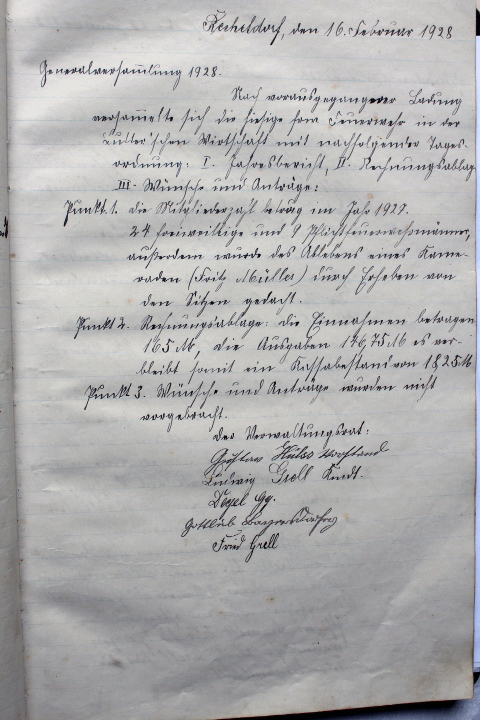 Recheldorf, den 16. Februar 1928
Generalversammlung 1928.
Nach vorausgegangener Ladung
versammelte sich die hiesige freiw Feuerwehr in der
Wirtschaft mit nachfolgender Tages-
ordnung: I. Jahresbericht, II. Rechnungsablage
III. Wünsche und Anträge:
Punkt. 1. die Mitgliederzahl betrag im Jahr 1927.
24 freiwillige und 9 Pflichtfeuerwehrmänner,
außerdem wurde des Ablebens eines Kame-
raden (Fritz Müller) durch Erheben von
den Sitzen gedacht.
Punkt 2. Rechnungsablage: die Einnahmen betragen
165 M, die Ausgaben 146,75 M es ver-
bleibt somit ein Kassabestand von 18,25 M
Punkt 3. Wünsche und Anträge wurden nicht
vorgebracht.
der Verwaltungsrat:
Gustav Vorstand
Ludwig Grell Kmdt.
Gg.
Gottlieb
Fried Grell